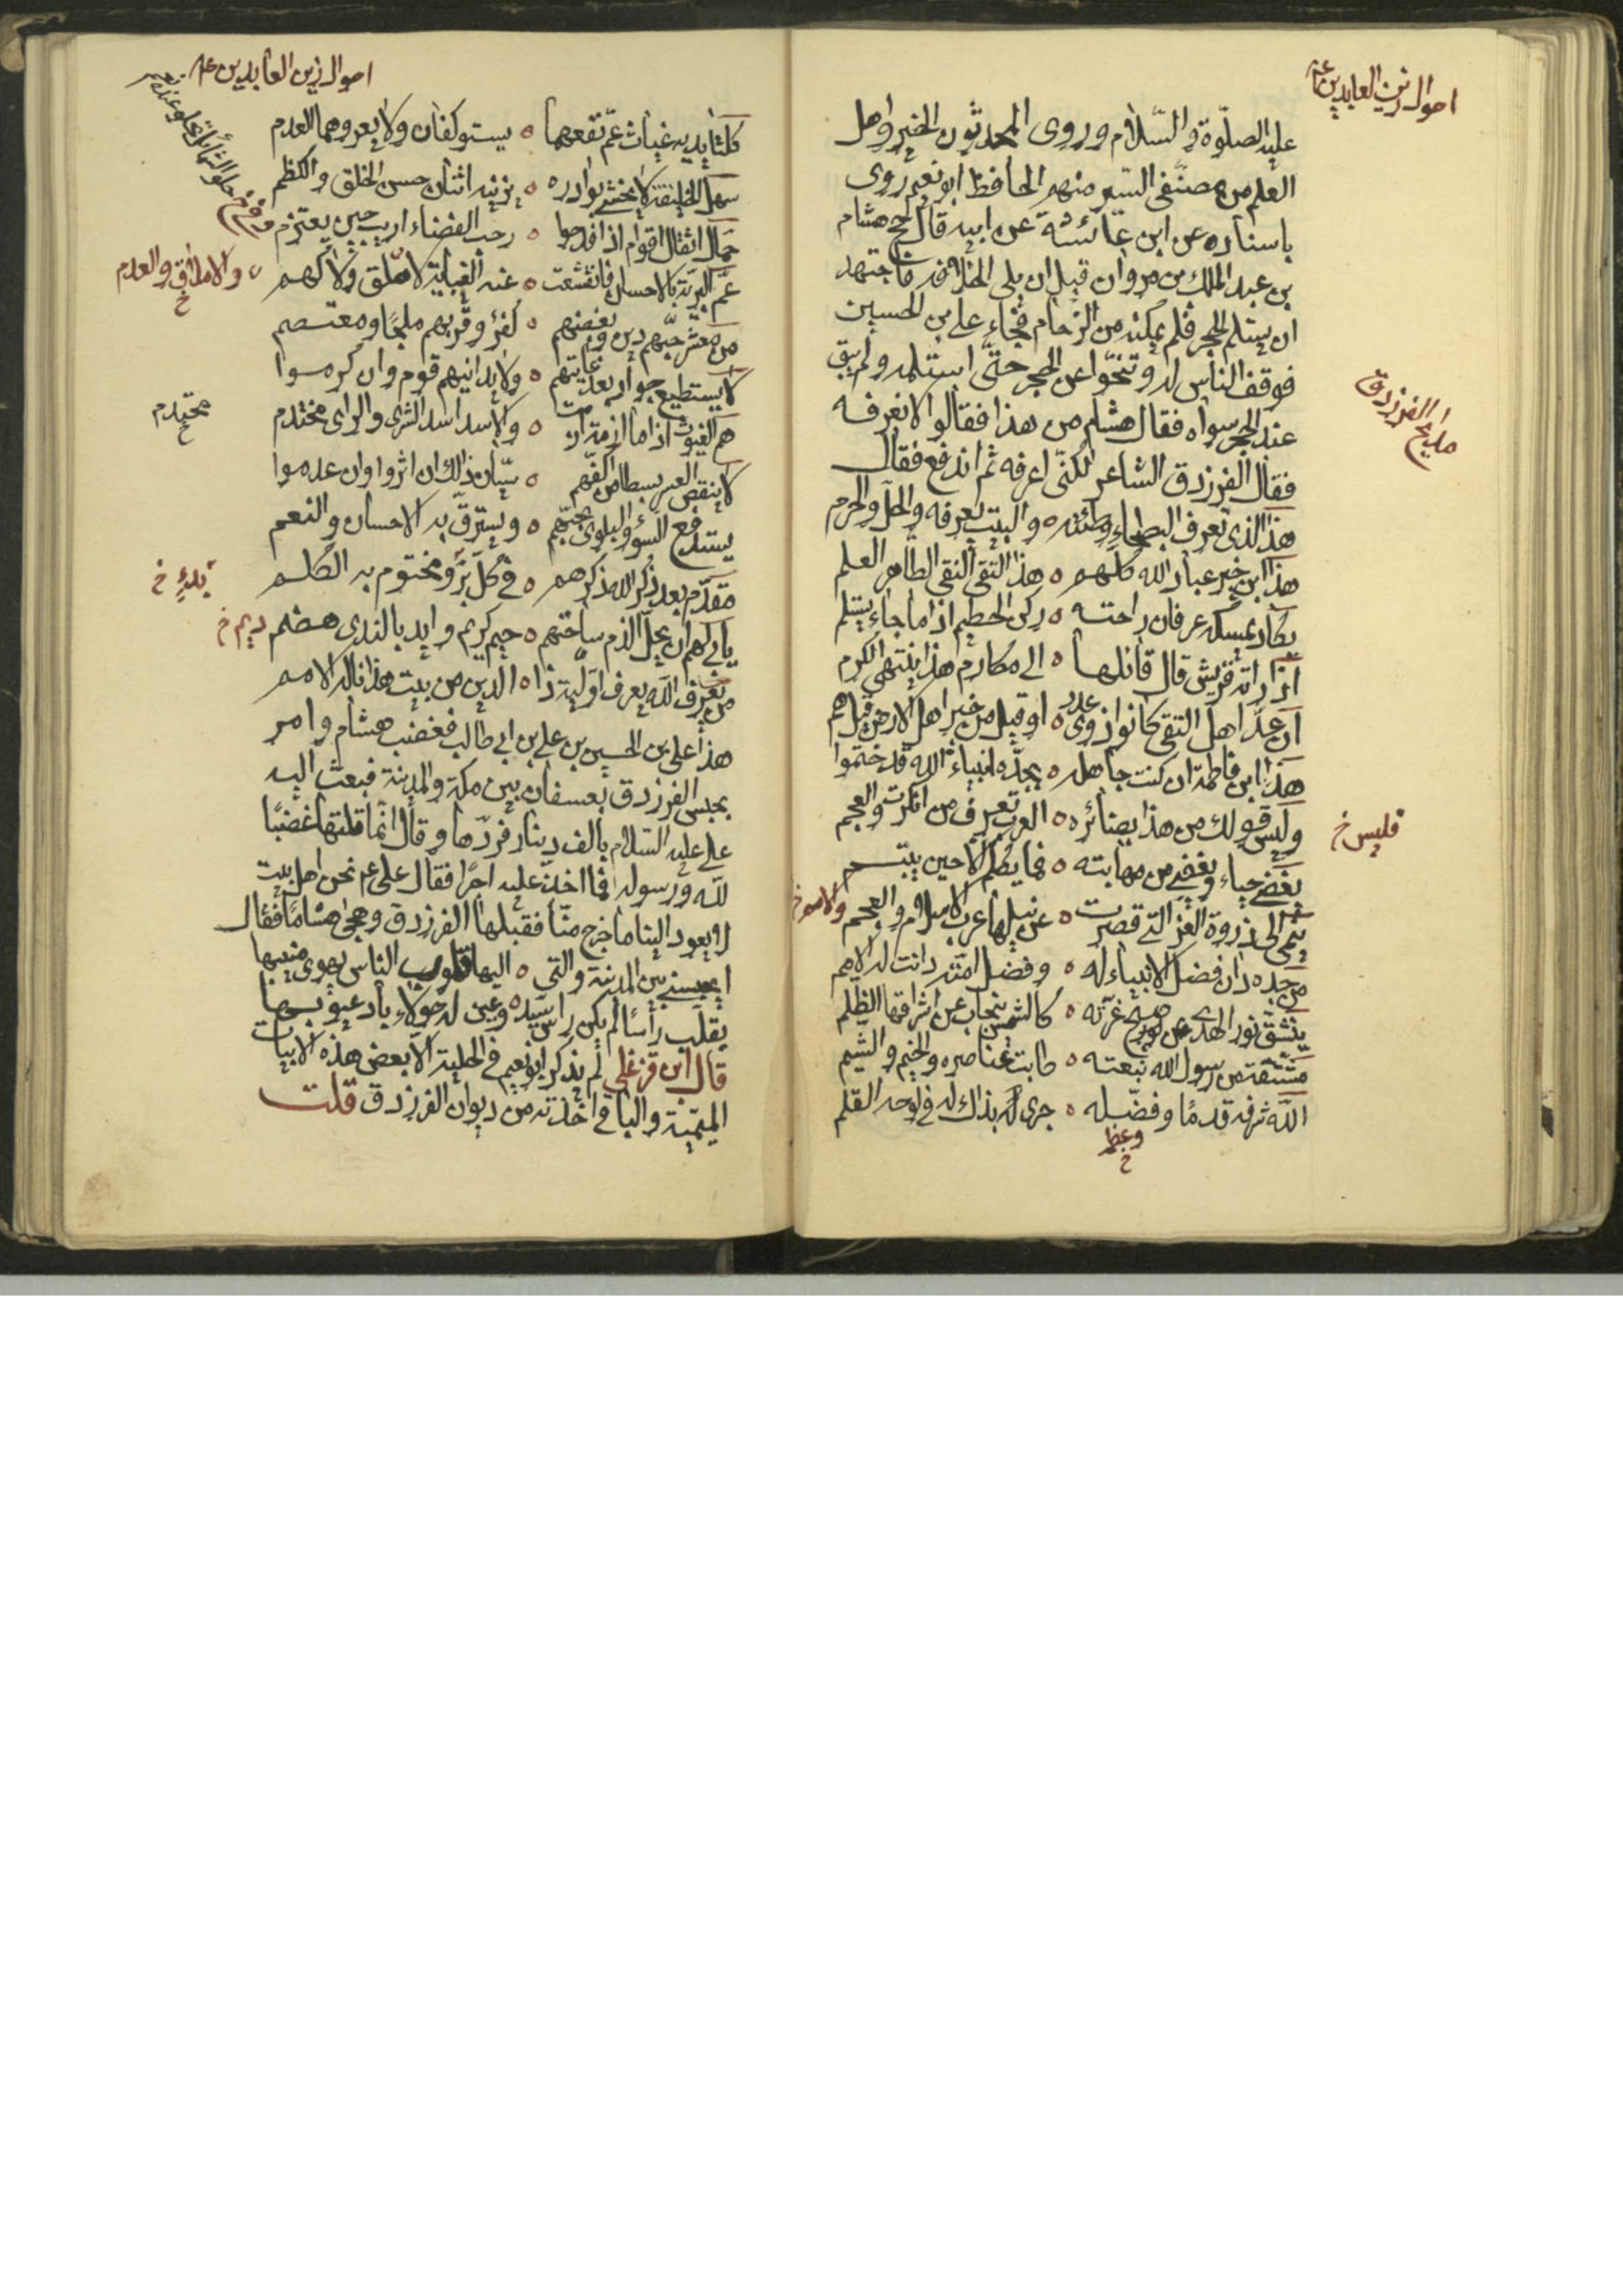 احوال زين العابدين عم
عليه الصلوة والسّلام وروى المحدثون الخبر واهل
العلم من مصنّفى السّير منهم الحافظ ابو نعيم روى
باسناده عن ابن عائشة عن ابيه قال حج هشام
بن عبد الملك بن مروان قبل ان يلى الخلافة فاجتهد
ان يستلم الحجر فلم يمكنه من الزحام فجاء على بن الحسين
فوقف الناس له وتنحّوا عن الحجر حتّى استلمه ولم يبق
مديح الفرزدق
عند الحجر سواه فقال هشام من هذا فقالوا لا نعرفه
فقال الفرزدق الشاعر لكنّى اعرفه ثم اندفع فقال
هذا الذى تعرف البطحاء وطئته ه والبيت يعرفه والحلّ والحرم
هذا ابن خير عباد الله كلّهم ه هذا التقى النقى الطّاهر العلم
يكاد يمسكه عرفان راحته ه ركن الحطيم اذا ما جاء يستلم
اذا راته قريش قال قائلها ه الى مكارم هذا ينتهى الكرم
ان عدّ اهل التقى كانوا ذوى عدد ه او قيل من خير اهل الارض قيل هم
هذا ابن فاطمة ان كنت جاهله ه بجدّه انبياء الله قد ختموا
وليس قولك من هذا بضائره ه العرب تعرف من انكرت والعجم
فليس خ
يغضى حياء ويغضى من مهابته ه فما يكلّم الّا حين يبتسم
ينمى الى ذروة العزّ التى قصرت ه عن نيلها عرب الاسلام والعجم
والامم خ
من جده دان فضل الانبياء له ه وفضل امّته دانت له الامم
ينشقّ نور الهدى عن صبح غرّته ه كالشمس ينجاب عن اشراقها الظلم
مشتقّة من رسول الله نبعته ه طابت عناصره والخيم والشّيم
الله شرفه قدمًا وفضّله ه جرى له بذاك له فى لوحه القلم
وعظمه خ
احوال زين العابدين عم
كلتا يديه غياث عمّ نفعهما ه يستوكفان ولا يعروهما العدم
سهل الخليقة لا يخشى بوادره ه يزينه اثنان حسن الخلق والكظم
حمّال اثقال اقوام اذا فدحوا ه رحب الفناء اريب حين يعتزم
حلو الشمائل تحلو عنده نعم خ
عمّ البريّة بالاحسان فانقشعت ه عنه الغيابة لا هلق ولا كهم
والاملاق والعدم خ
من معشر حبّهم دين وبغضهم ه كفر وقربهم ملجًا ومعتصم
لا يستطيع جواد بعد غايتهم ه ولا يدانيهم قوم وان كرموا
هم الغيوث اذا ما ازمة ازمت ه والاسد اسد الشرى والراى مختدم
محتدم خ
لا ينقص العسر بسطا من اكفّهم ه سيّان ذلك ان اثروا وان عدموا
يستدفع السوء والبلوى بحبّهم ه ويسترقّ به الاحسان والنعم
مقدّم بعد ذكر الله ذكرهم ه فى كلّ برّ ومختوم به الكلم
بدء خ
يابى لهم ان يحلّ الذم ساحتهم ه خيم كريم وايد بالندى هضم
ديم خ
من يعرف الله يعرف اوّليّة ذا ه الدين من بيت هذا ناله الامم
هذا على بن الحسين بن على بن ابى طالب فغضب هشام وامر
بحبس الفرزدق بعسفان بين مكة والمدينة فبعث اليه
على عليه السّلام بالف دينار فردّها وقال انّما قلتها غضبًا
لله ورسوله فما اخذ عليه اجرًا فقال على عم نحن اهل بيت
لا يعود الينا ما خرج منّا فقبلها الفرزدق وهجى هشامًا فقال
ايحبسنى بين المدينة والتى ه اليها قلوب الناس يهوى منيبها
يقلّب راسًا لم يكن راس سيّد ه وعين له حولاء باد عيوبها
قال ابن قزغلى لم يذكر ابو نعيم فى الحلية الّا بعض هذه الابيات
الميميّة والباقى اخذته من ديوان الفرزدق قلت